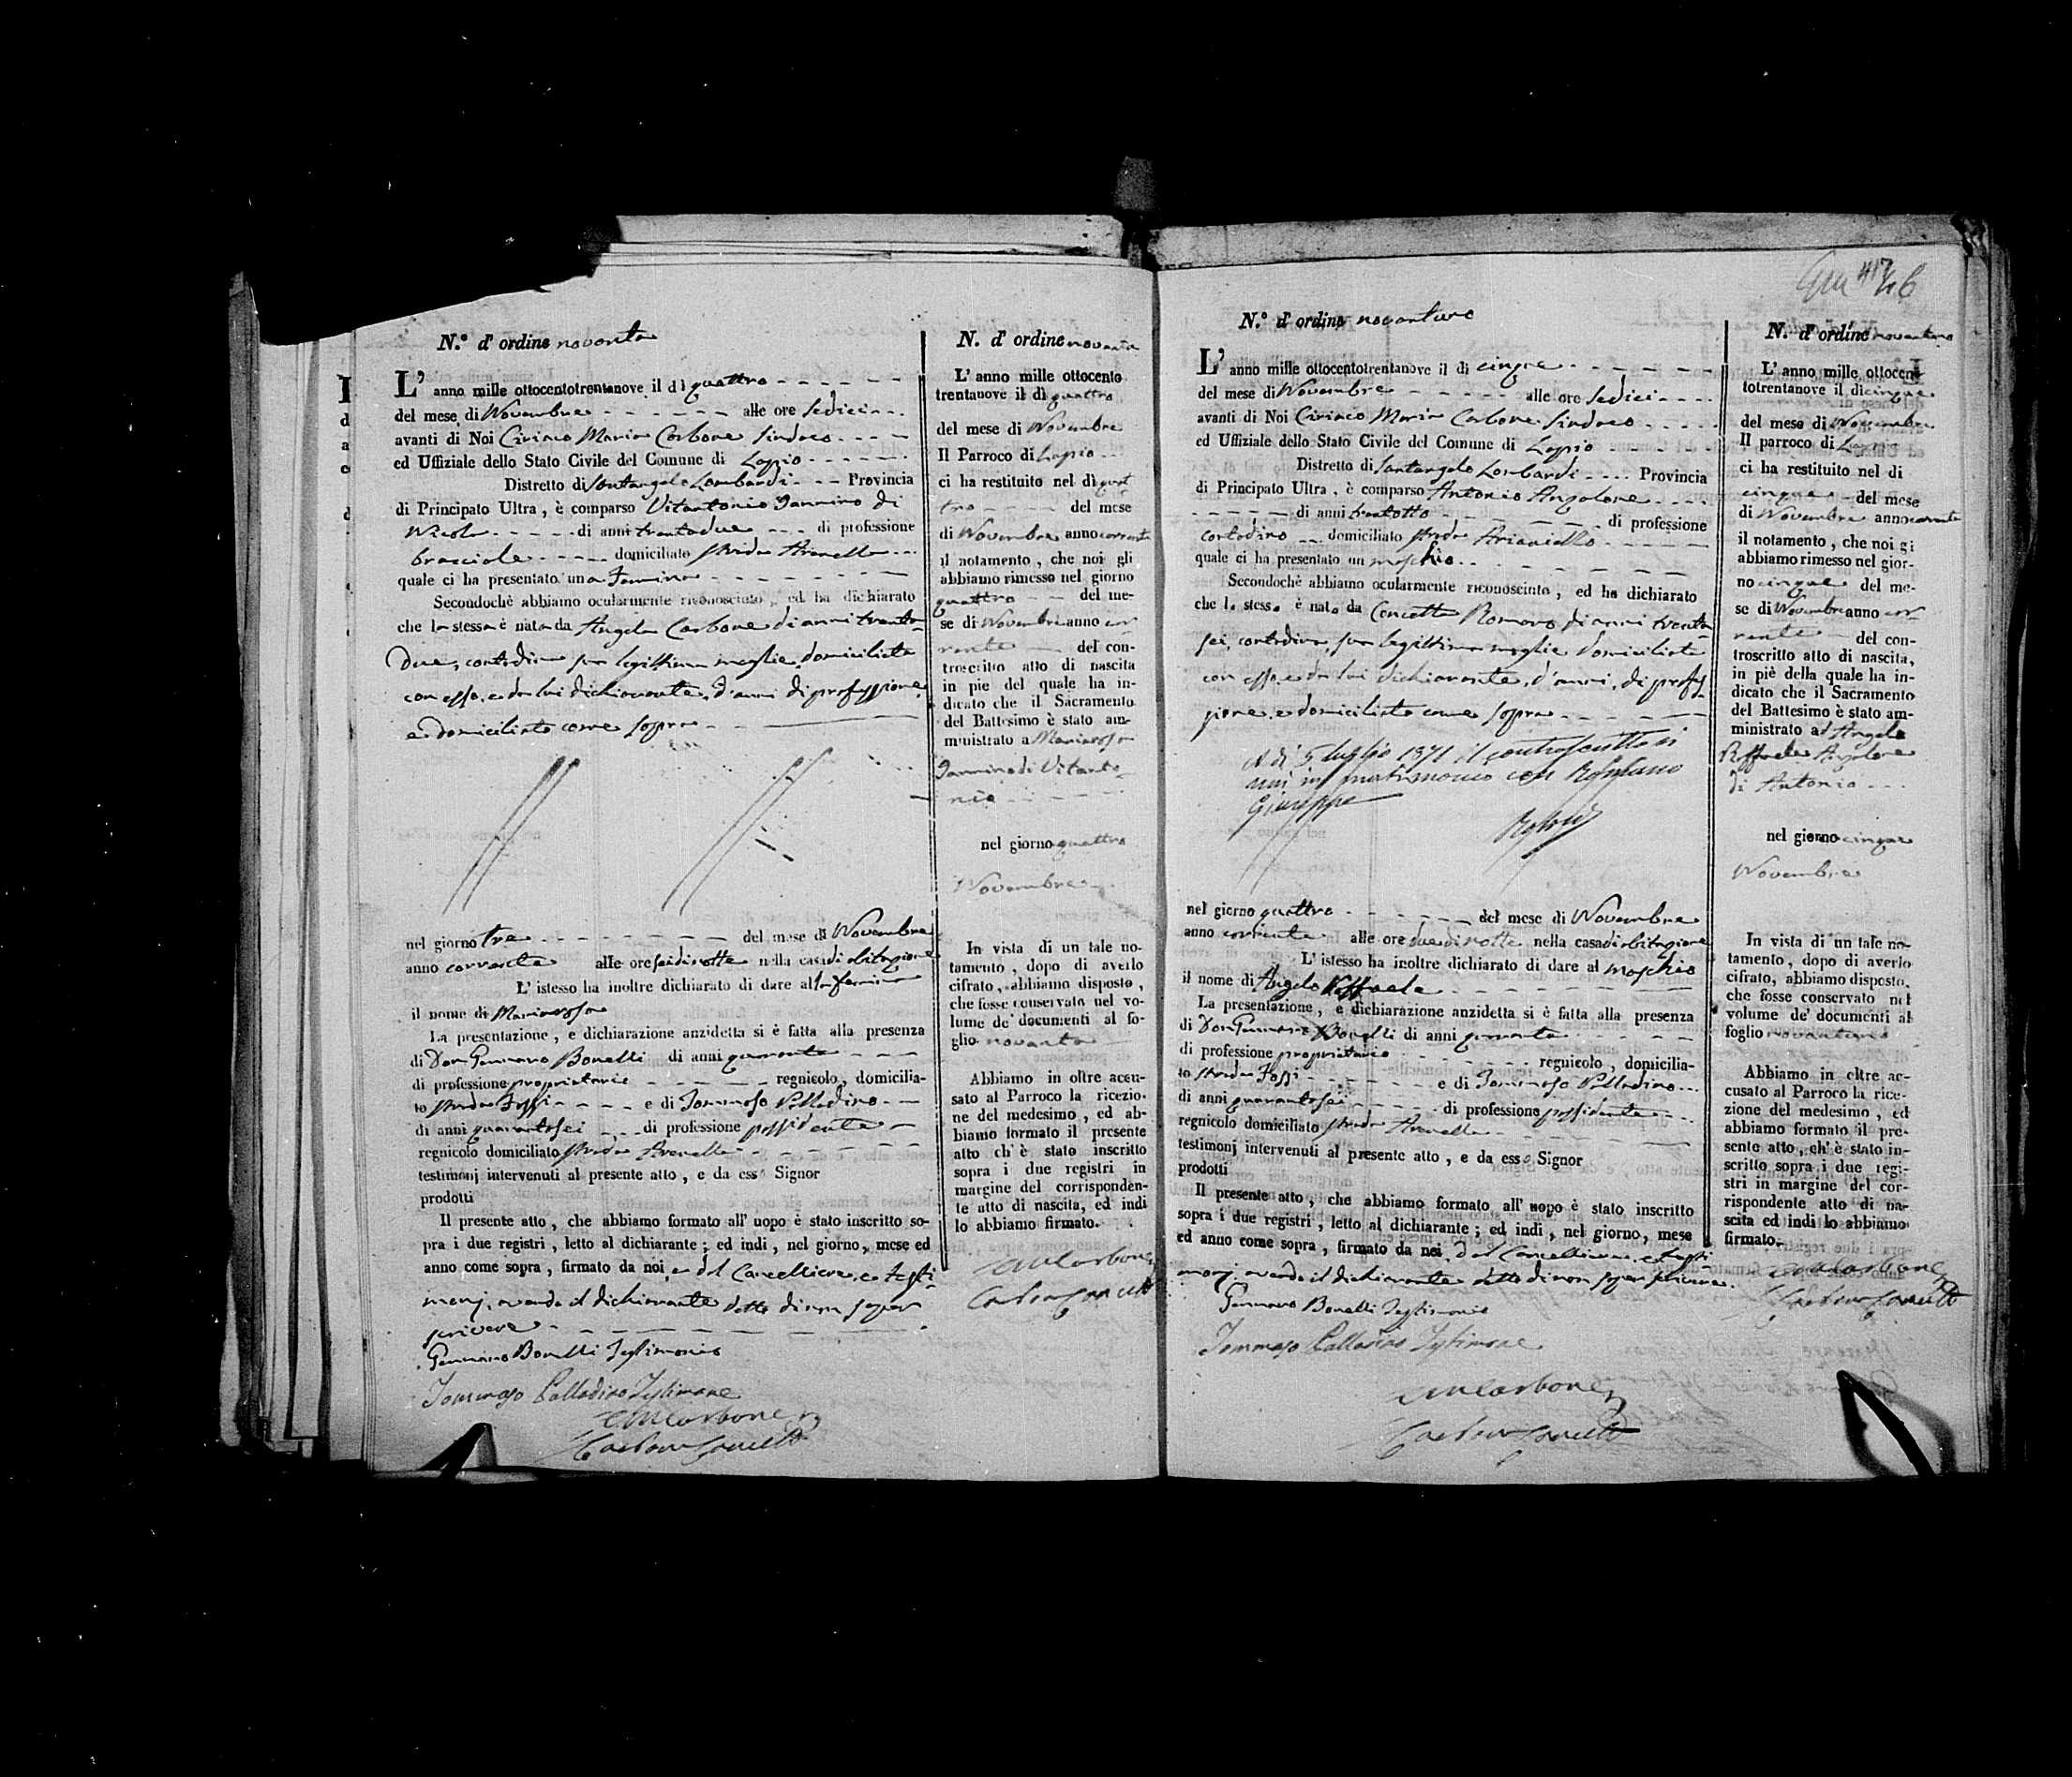 N.º d' ordine novanta
L' anno mille ottocentotrentanove il dì quattro
del mese di Novembre alle ore sedici
avanti di Noi Ciriaco Maria Carbone Sindaco
ed Uffiziale dello Stato Civile del Comune di Lapio
Distretto di Santangelo Lombardi Provincia
di Principato Ultra, è comparso Vitantonio Iannino di
Nicola di anni trentadue di professione
bracciale domiciliato strada Arenella
quale ci ha presentato una Femina
Secondochè abbiamo ocularmente riconosciuto, ed ha dichiarato
che la stessa è nata da Angela Carbone di anni trenta
due, contadina sua legittima moglie domiciliata
con esso, e da lui dichiarante, d'anni di professione,
e domiciliato come sopra
nel giorno tre del mese di Novembre
anno corrente alle ore sei di notte nella casa di abitazione
L' istesso ha inoltre dichiarato di dare al la femina
il nome di Mariarosa
La presentazione, e dichiarazione anzidetta si è fatta alla presenza
di Don Gennaro Bonelli di anni quaranta
di professione proprietario regnicolo, domicilia-
to strada Fossi e di Tommaso Palladino
di anni quarantasei di professione possidente
regnicolo domiciliato strada Arenella
testimonj intervenuti al presente atto, e da esso Signor
prodotti
Il presente atto, che abbiamo formato all' uopo è stato inscritto so-
pra i due registri, letto al dichiarante; ed indi, nel giorno, mese ed
anno come sopra, firmato da noi, e dal Cancelliere, e testi
monj, avendo il dichiarante detto di non saper
scrivere
Gennaro Bonelli Testimonio
Tommaso Palladino Testimone
CMCarbone
N. d' ordine novanta
L' anno mille ottocento
trentanove il dì quattro
del mese di Novembre
Il Parroco di Lapio
ci ha restituito nel dì quat
tro del mese
di Novembre anno corrente
il notamento, che noi gli
abbiamo rimesso nel giorno
quattro del me-
se di Novembre anno cor
rente del con-
troscritto atto di nascita
in piè del quale ha in-
dicato che il Sacramento
del Battesimo è stato am-
ministrato a Mariarosa
Iannino di Vitanto
nio
nel giorno quattro
Novembre
In vista di un tale no-
tamento, dopo di averlo
cifrato, abbiamo disposto,
che fosse conservato nel vo-
lume de' documenti al fo-
glio novanta
Abbiamo in oltre accu-
sato al Parroco la ricezio-
ne del medesimo, ed ab-
biamo formato il presente
atto ch' è stato inscritto
sopra i due registri in
margine del corrisponden-
te atto di nascita, ed indi
lo abbiamo firmato.
CMCarbone
46
N.º d' ordine novantuno
L' anno mille ottocentotrentanove il dì cinque
del mese di Novembre alle ore sedici
avanti di Noi Ciriaco Maria Carbone Sindaco
ed Uffiziale dello Stato Civile del Comune di Lapio
Distretto di Santangelo Lombardi Provincia
di Principato Ultra, è comparso Antonio Anzalone
di anni trentotto di professione
contadino domiciliato strada Arianiello
quale ci ha presentato un maschio
Secondochè abbiamo ocularmente riconosciuto, ed ha dichiarato
che lo stesso è nato da Concetta Romano di anni trenta
sei, contadina, sua legittima moglie domiciliata
con esso, e da lui dichiarante, d'anni, di profes
sione, e domiciliato come sopra
A dì 5 luglio 1871 il controscritto si
unì in matrimonio con
Giuseppa
nel giorno quattro del mese di Novembre
anno corrente alle ore due di notte nella casa di abitazione
L' istesso ha inoltre dichiarato di dare al maschio
il nome di Angelo Raffaele
La presentazione, e dichiarazione anzidetta si è fatta alla presenza
di Don Gennaro Bonelli di anni quaranta
di professione proprietario regnicolo, domicilia-
to strada Fossi e di Tommaso Palladino
di anni quarantasei di professione possidente
regnicolo domiciliato strada Arenella
testimonj intervenuti al presente atto, e da esso Signor
prodotti
Il presente atto, che abbiamo formato all' uopo è stato inscritto
sopra i due registri, letto al dichiarante; ed indi, nel giorno, mese
ed anno come sopra, firmato da noi, dal Cancelliere, e testi
monj, avendo il dichiarante detto di non saper scrivere.
Gennaro Bonelli Testimonio
Tommaso Palladino Testimone
CMCarbone
N. d' ordine novantuno
L' anno mille ottocen-
totrentanove il dì cinque
del mese di Novembre
Il parroco di Lapio
ci ha restituito nel dì
cinque del mese
di Novembre anno corrente
il notamento, che noi gi
abbiamo rimesso nel gior-
no cinque del me-
se di Novembre anno cor
rente del con-
troscritto atto di nascita,
in piè della quale ha in-
dicato che il Sacramento
del Battesimo è stato am-
ministrato ad Angelo
Raffaele Anzalone
di Antonio
nel giorno cinque
Novembre
In vista di un tale no-
tamento, dopo di averlo
cifrato, abbiamo disposto,
che fosse conservato nel
volume de' documenti al
foglio novantuno
Abbiamo in oltre ac-
cusato al Parroco la rice-
zione del medesimo, ed
abbiamo formato il pre-
sente atto, ch' è stato in-
scritto sopra i due regi-
stri in margine del cor-
rispondente atto di na-
scita ed indi lo abbiamo
firmato.
CMCarbone